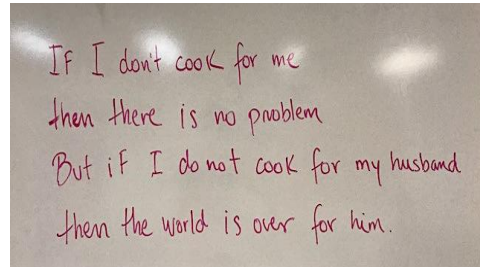 If I don't cook for me
then there is no problem
But if I do not cook for my husband
then the world is over for him.